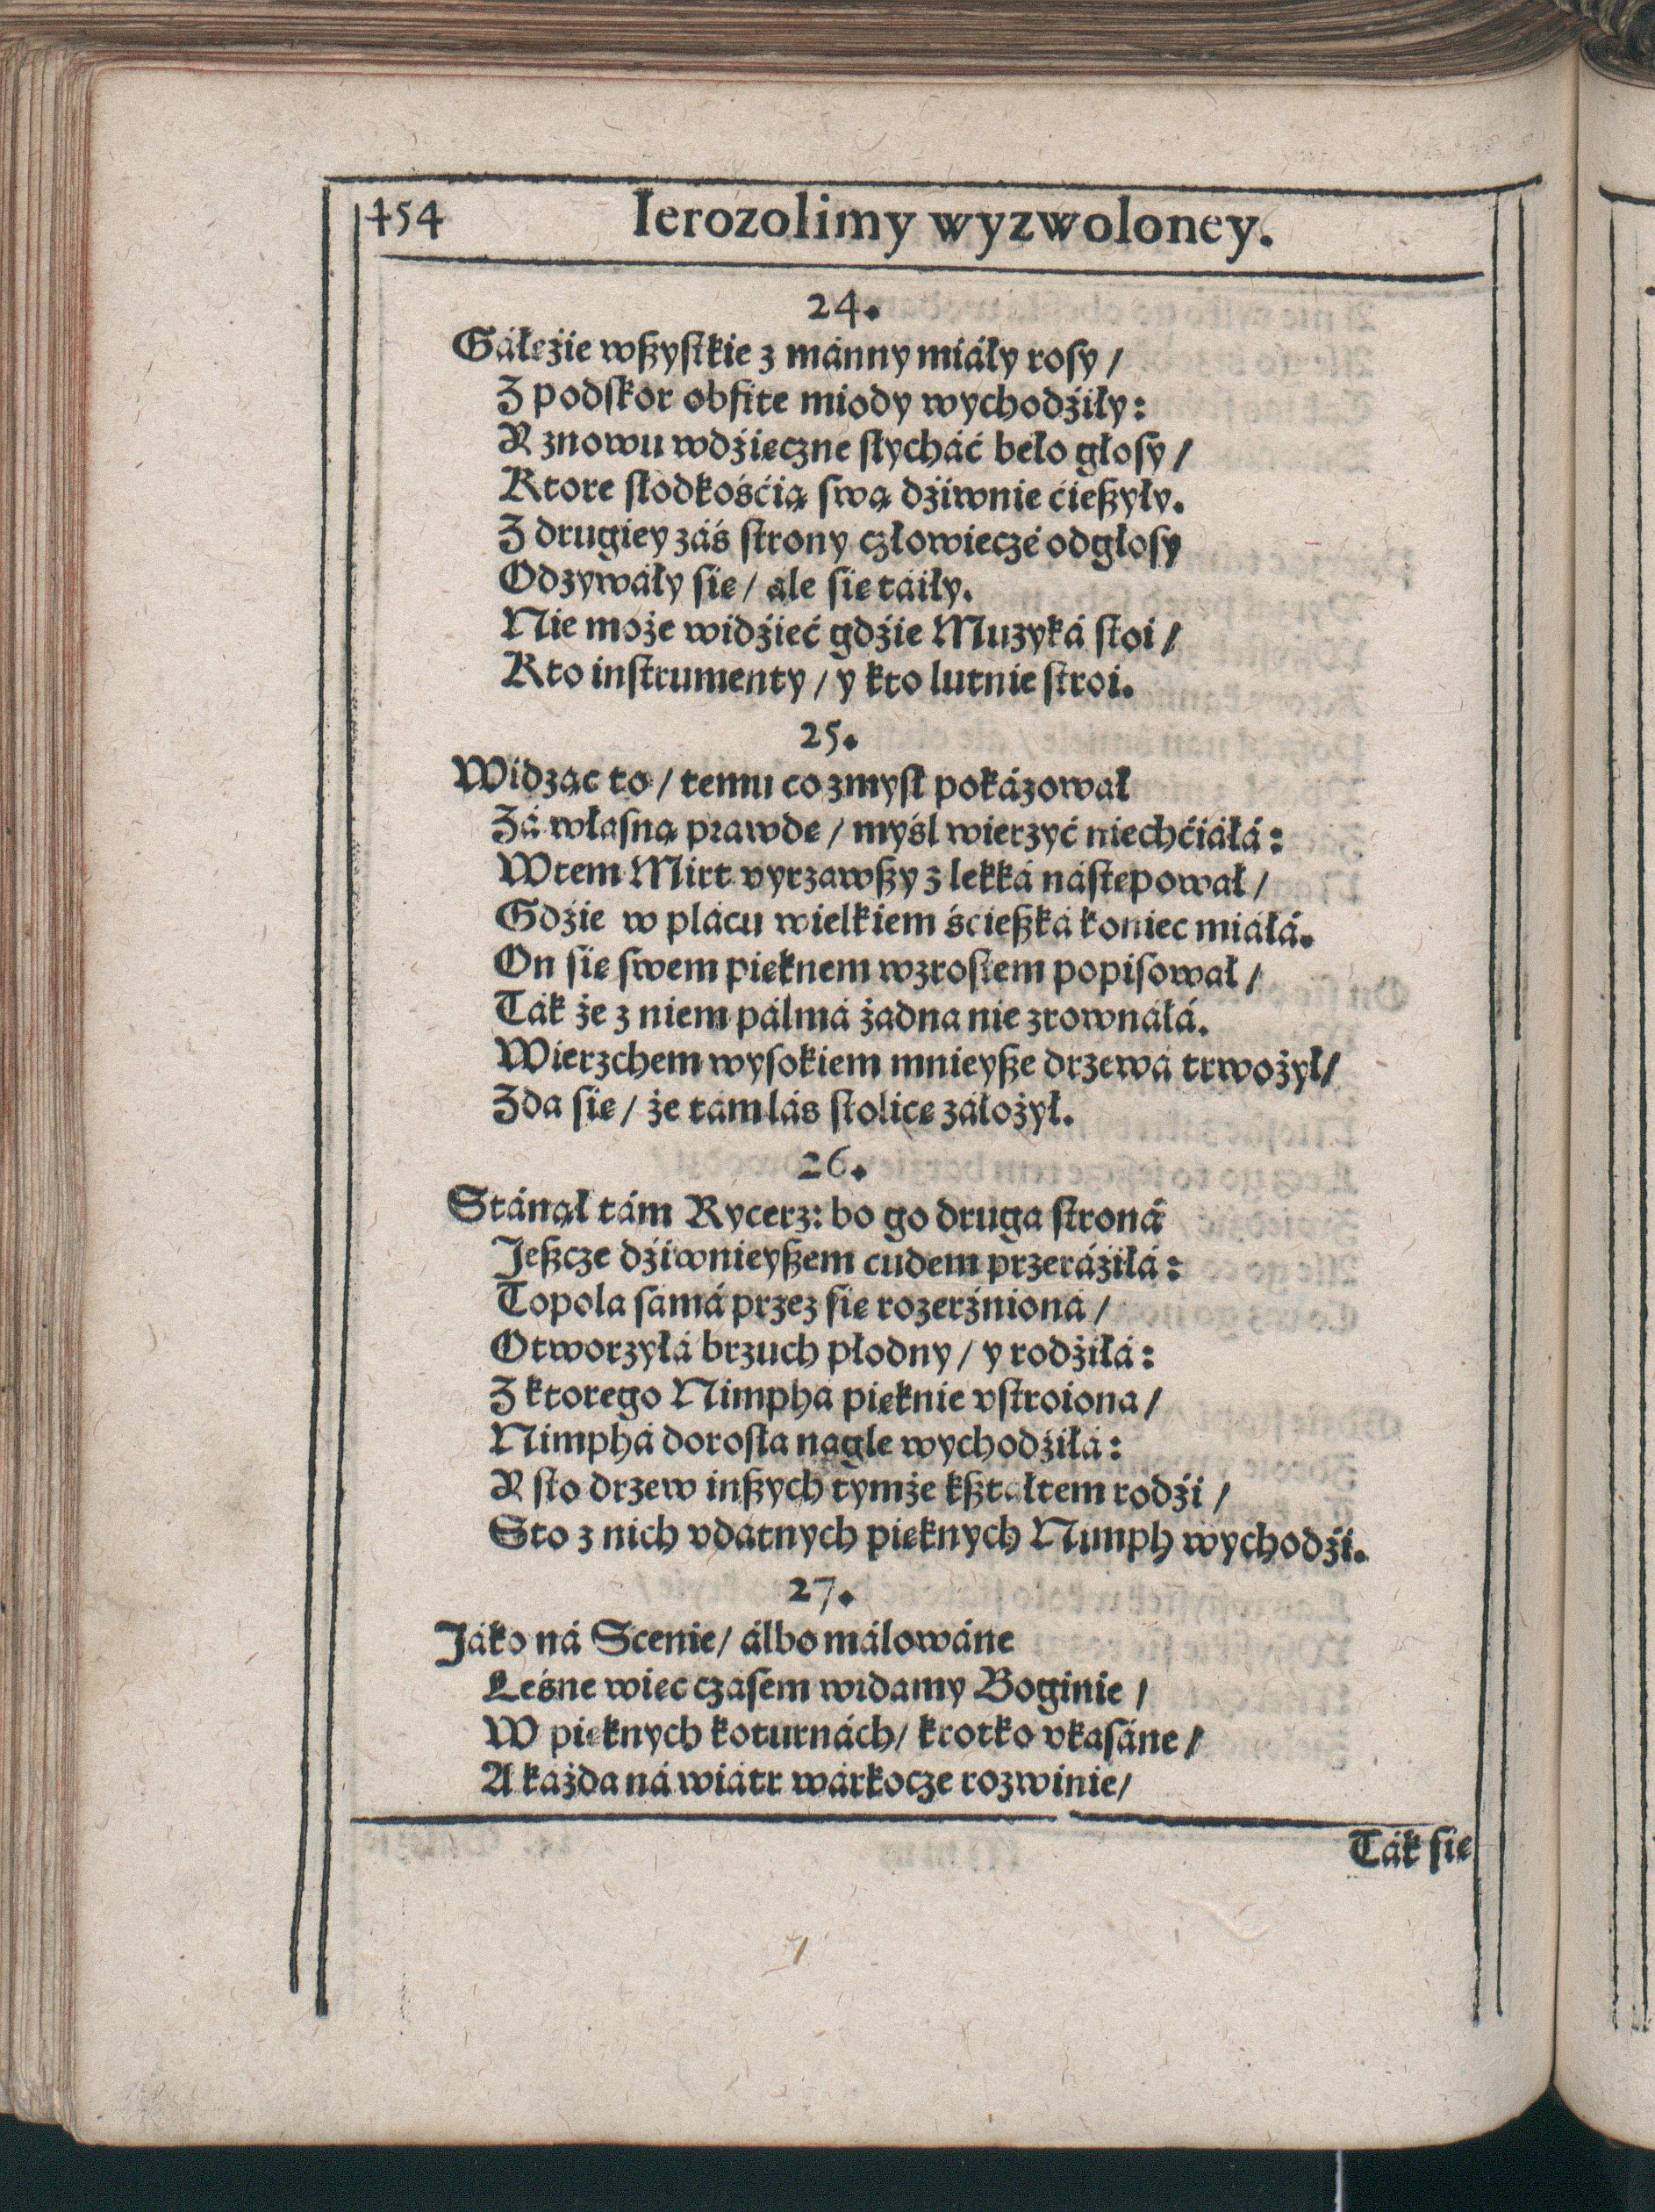 454 Ierozolimy wyzwoloney.
24.
Gáłęźie wßyſtkie z mánny miáły roſy /
Z podſkor obfite miody wychodźiły:
Y znowu wdźięczne ſłycháć beło głoſy /
Ktore ſłodkośćią ſwą dźiwnie ćießyły.
Z drugiey záś ſtrony człowiecze odgłoſy
Odzywáły ſię / ále ſię táiły.
Nie może widźieć gdźie Muzyká ſtoi /
Kto inſtrumenty / y kto lutnie ſtroi.
25.
Widząc to / temu co zmyſł pokázował
Zá własną prawdę / myśl wierzyć niechćiáłá:
Wtem Mirt vyrzawßy z lekká náſtępował /
Gdźie w plácu wielkiem śćießká koniec miáłá.
On ſię ſwem pięknem wzroſtem popiſował /
Ták że z niem pálmá żadna nie zrownáłá.
Wierzchem wyſokiem mnieyße drzewá trwożył /
Zda ſię / że tám lás ſtolicę záłożył.
26.
Stánął tám Rycerz: bo go druga ſtroná
Jeßcze dźiwnieyßem cudem przeráźiłá:
Topola ſamá przez ſię rozerźnioná /
Otworzyłá brzuch płodny / y rodźiłá:
Z ktorego Nimphá pięknie vſtroiona /
Nimphá doroſła nagle wychodźiłá:
Y ſto drzew inßych tymże kßtałtem rodźi /
Sto z nich vdatnych pięknych Nimph wychodźi.
27.
Jáko ná Scenie / álbo málowáne
Leśne więc czáſem widamy Boginie /
W pięknych koturnách / krotko vkaſáne /
A każda ná wiátr wárkocze rozwinie /
Ták ſię